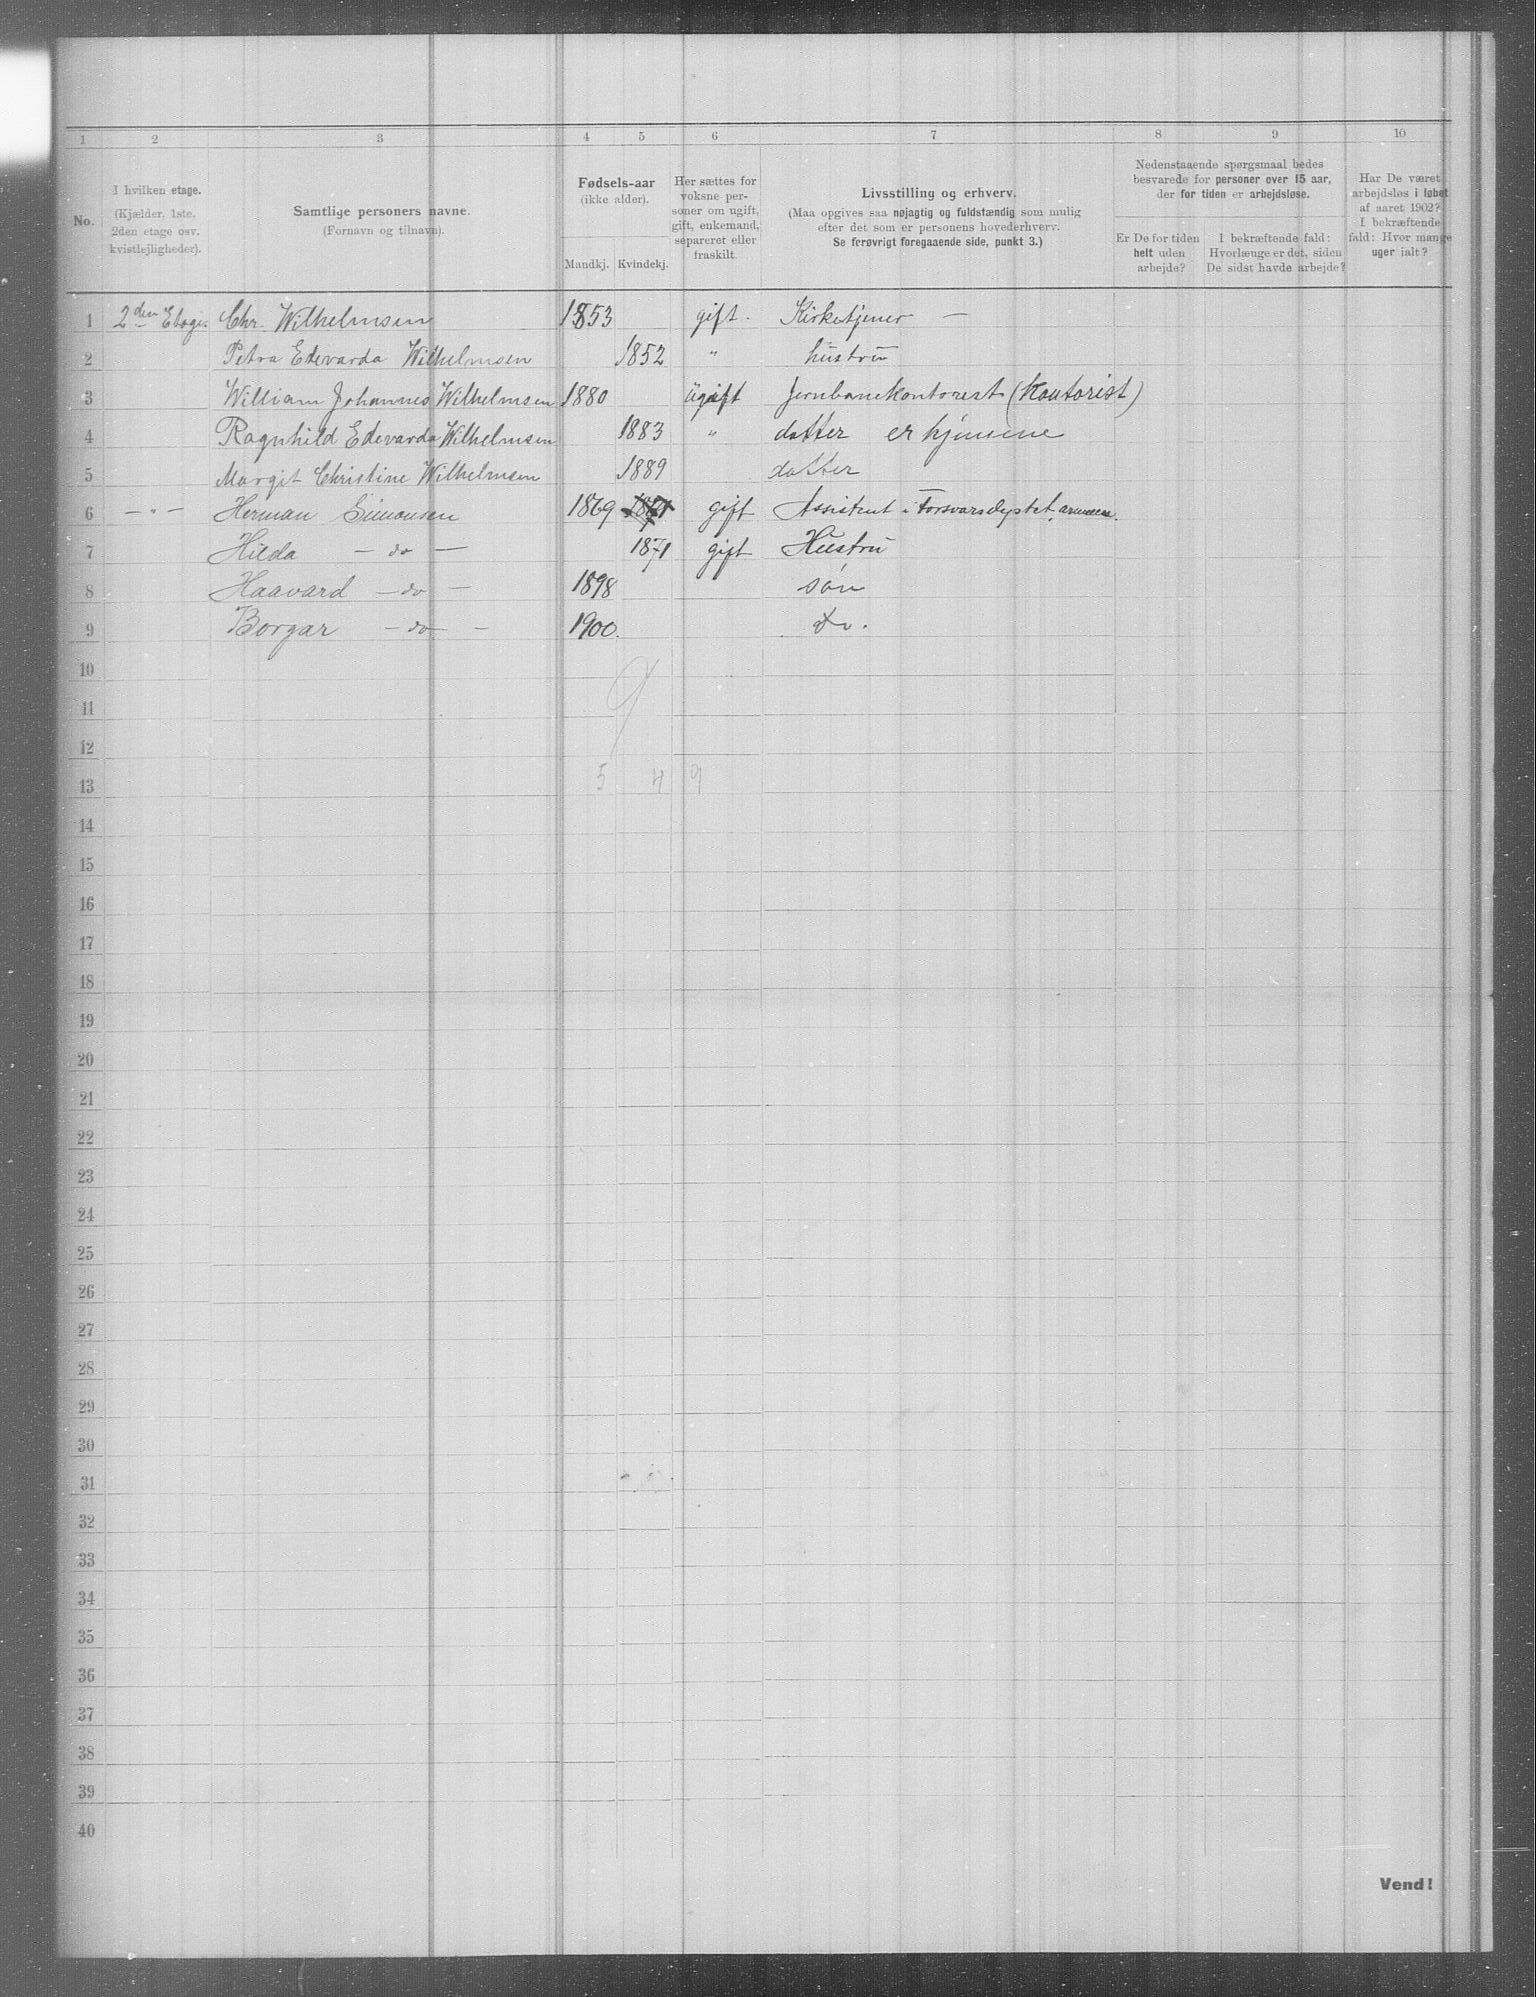 1 2 3 4 5 6 7 8 9 10
No.
I hvilken etage.
(Kjælder, 1ste.
2den etage osv.
kvistlejligheder).
Samtlige personers navne.
(Fornavn og tilnavn).
Fødsels-aar
(ikke alder).
Mandkj. Kvindekj.
Her sættes for
voksne per-
soner om ugift,
gift, enkemand,
separeret eller
fraskilt.
Livsstilling og erhverv.
(Maa opgives saa nøjagtig og fuldstændig som mulig
efter det som er personens hovederhverv.
Se forøvrigt foregaaende side, punkt 3.)
Nedenstaaende spørgsmaal bedes
besvarede for personer over 15 aar,
der for tiden er arbejdsløse.
Er De for tiden
helt uden
arbejde?
I bekræftende fald:
Hvorlænge er det, siden
De sidst havde arbejde?
Har De været
arbejdsløs i løbet
af aaret 1902?
I bekræftende
fald: Hvor mange
uger ialt?
1 2den Etage. Chr. Wilhelmsen 1853 gift. Kirketjener —
2 Petra Edevarda Wilhelmsen 1852 " hustru
3 William Johannes Wilhelmsen 1880 Ugift Jernbanekontorist (Kontorist)
4 Ragnhild Edevarda Wilhelmsen 1883 " datter er hjemme
5 Margit Christine Wilhelmsen 1889 datter
6 — " — Herman Simonsen 1869 1871 gift Assistent i Forsvarsdeptet, armeen.
7 Hilda — do — 1871 gift Hustru
8 Haavard — do — 1898 søn
9 Borgar — do — 1900. do.
10
9
11
12
13 5 4 9
14
15
16
17
18
19
20
21
22
23
24
25
26
27
28
29
30
31
32
33
34
35
36
37
38
39
40
Vend!